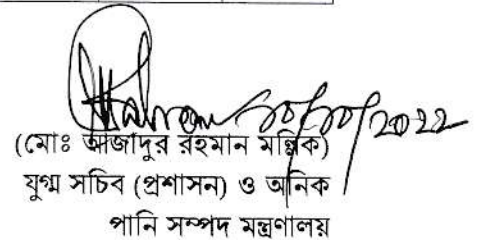 ২০/১০/2022
(মোঃ আজাদুর রহমান মল্লিক)
যুগ্ম সচিব (প্রশাসন) ও অনিক
পানি সম্পদ মন্ত্রণালয়